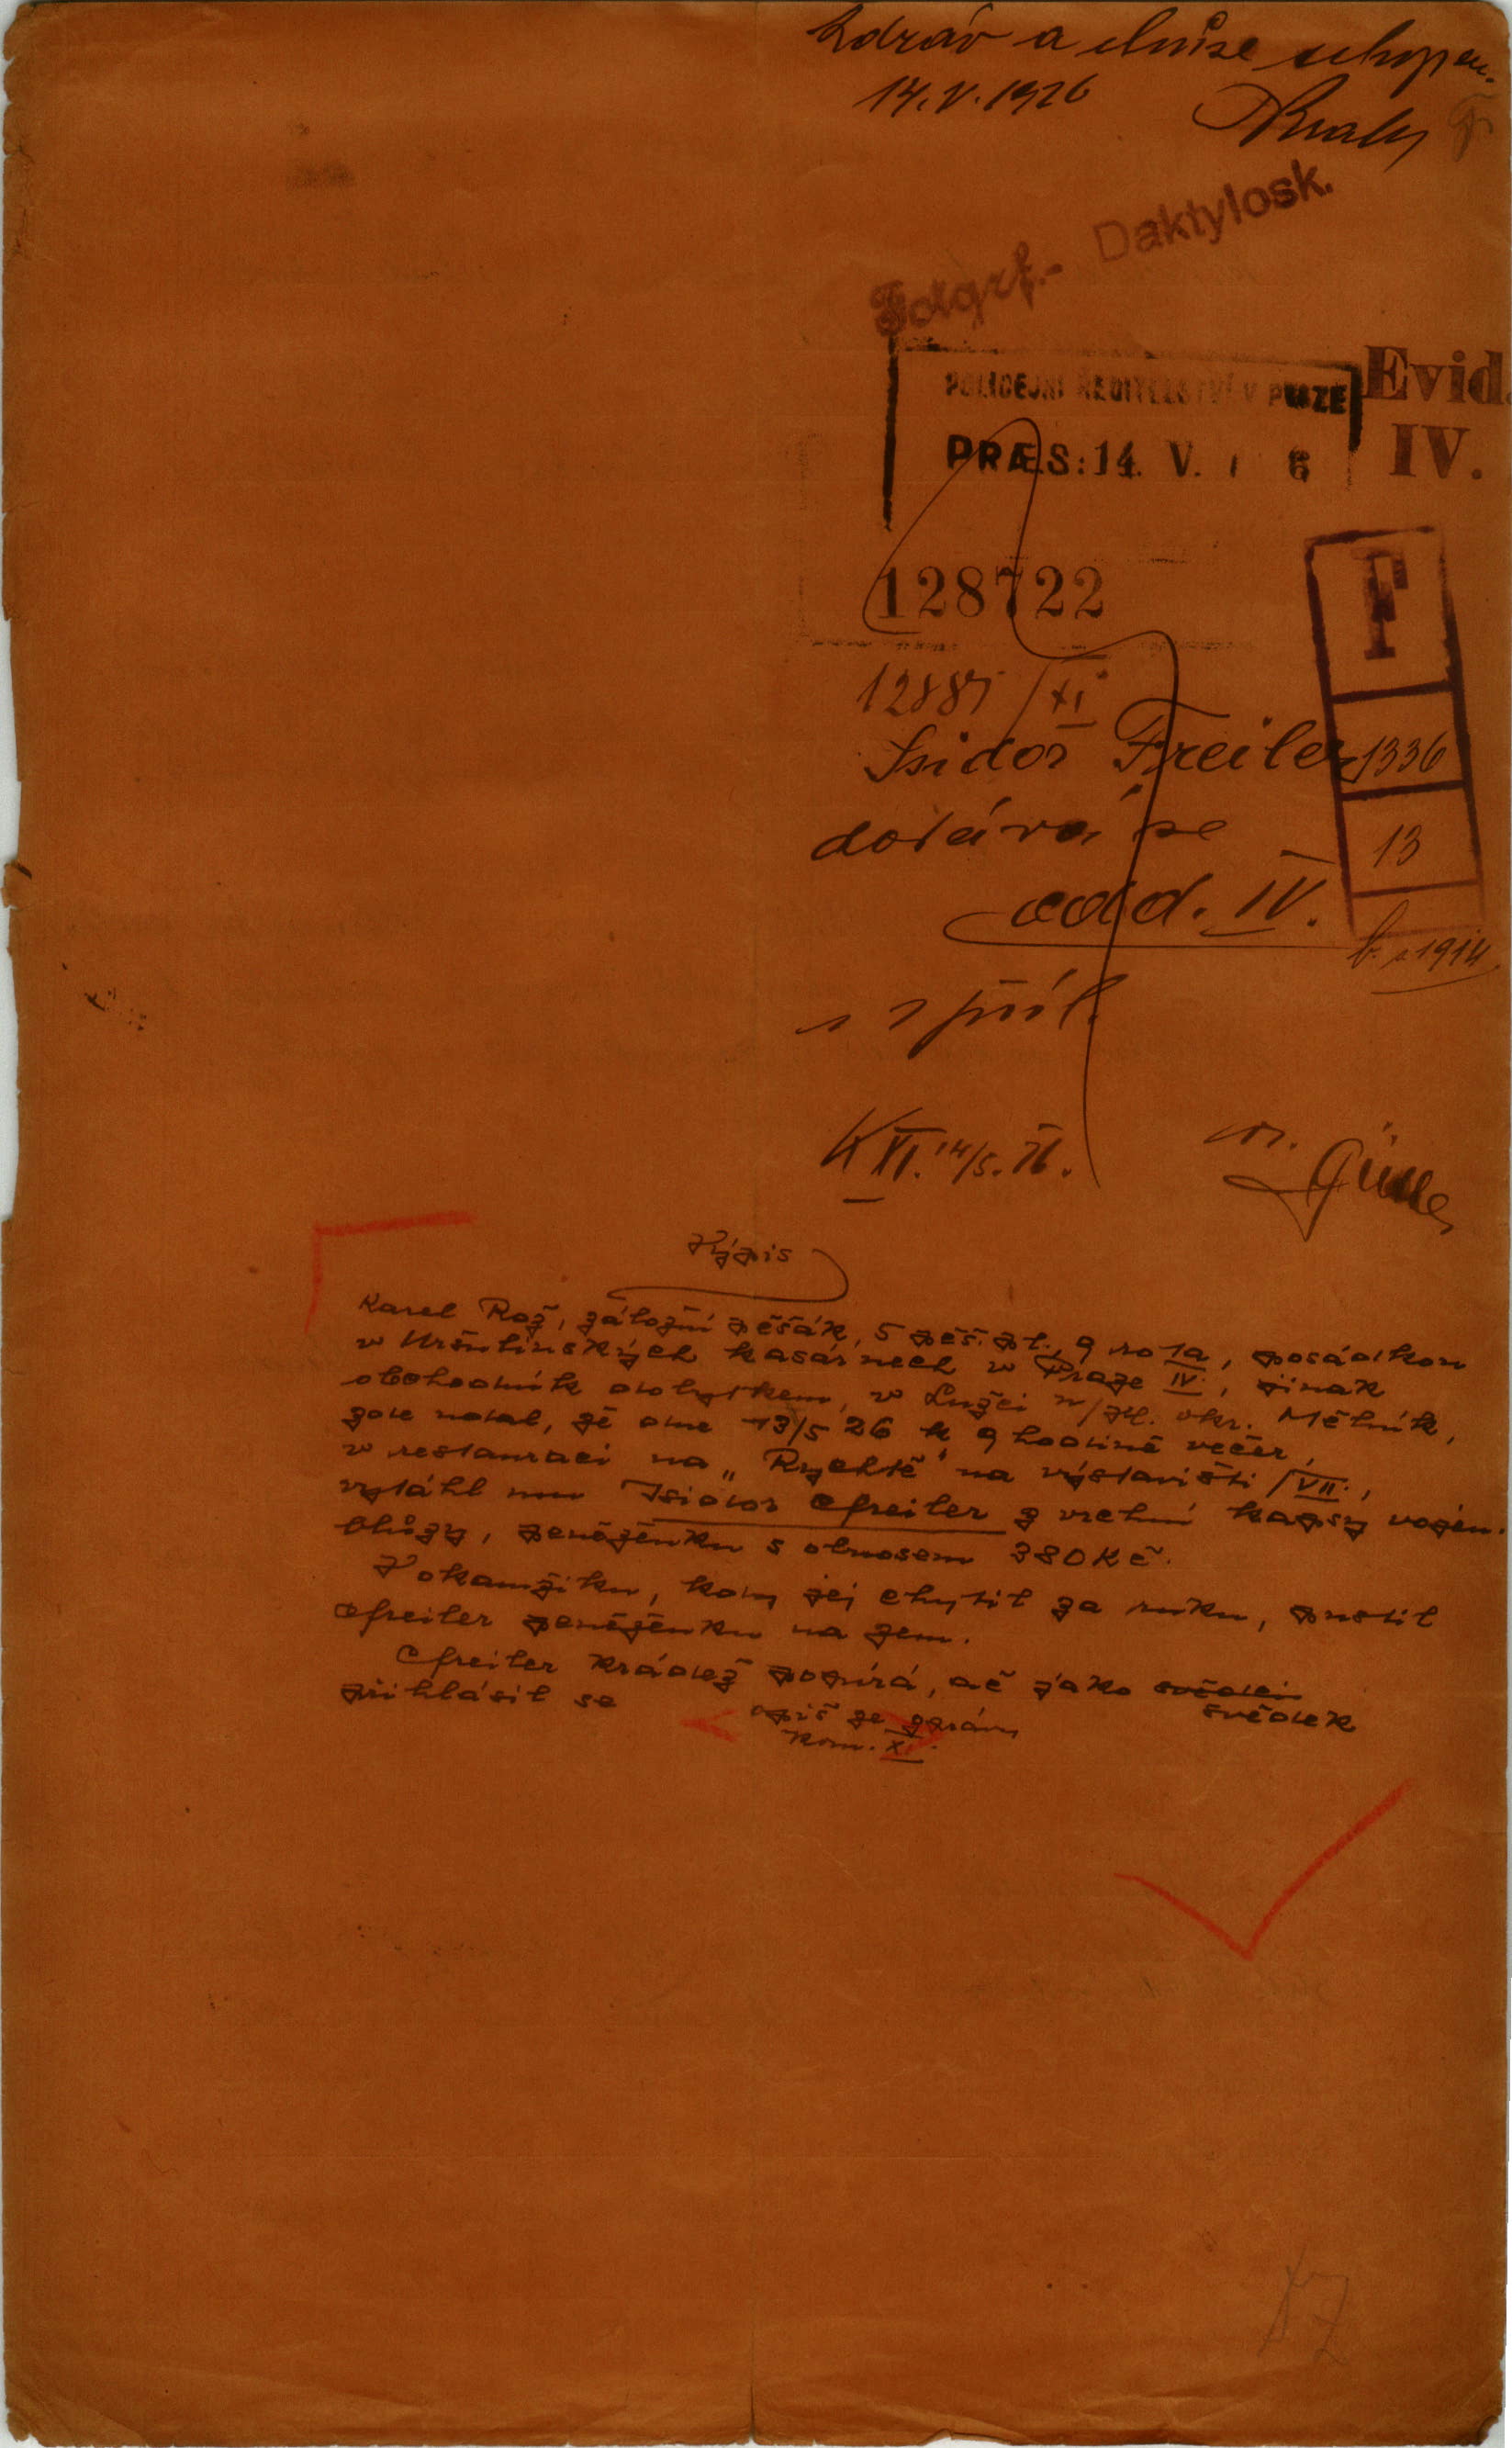 Zdráv a chůze schopen.
14.V.1926
Fotgrf.- Daktylosk.
POLICEJNÍ ŘEDITELSTVÍ V PRAZE
Evid.
IV.
PRÆS: 14. V. 6
128722
F
12887/XI
Isidor Freiler
1336
dodává se
13
odd. IV.
b. 1914
s 2 příl.
K XI. 14/5. 26.
Výpis
Karel Rož, záložní pěšák, 5 pěš. pl., 9 rota, posádkou
v Uršulinských kasárnech v Praze IV., jinak
obchodník dobytkem, v Lužci n/Vl. okr. Mělník,
zde udal, že dne 13/5 26 k 9 hodině večer,
v restauraci na „Rychtě" na výstavišti /VII.,
vytáhl mu Isidor Freiler z vrchní kapsy vojen.
blůzy, peněženku s obnosem 380 Kč.
V okamžiku, kdy jej chytil za ruku, pustil
Freiler peněženku na zem.
Freiler krádež popírá, ač jako svědci
svědek
přihlásil se
opis ze zprávy
kom. XI.